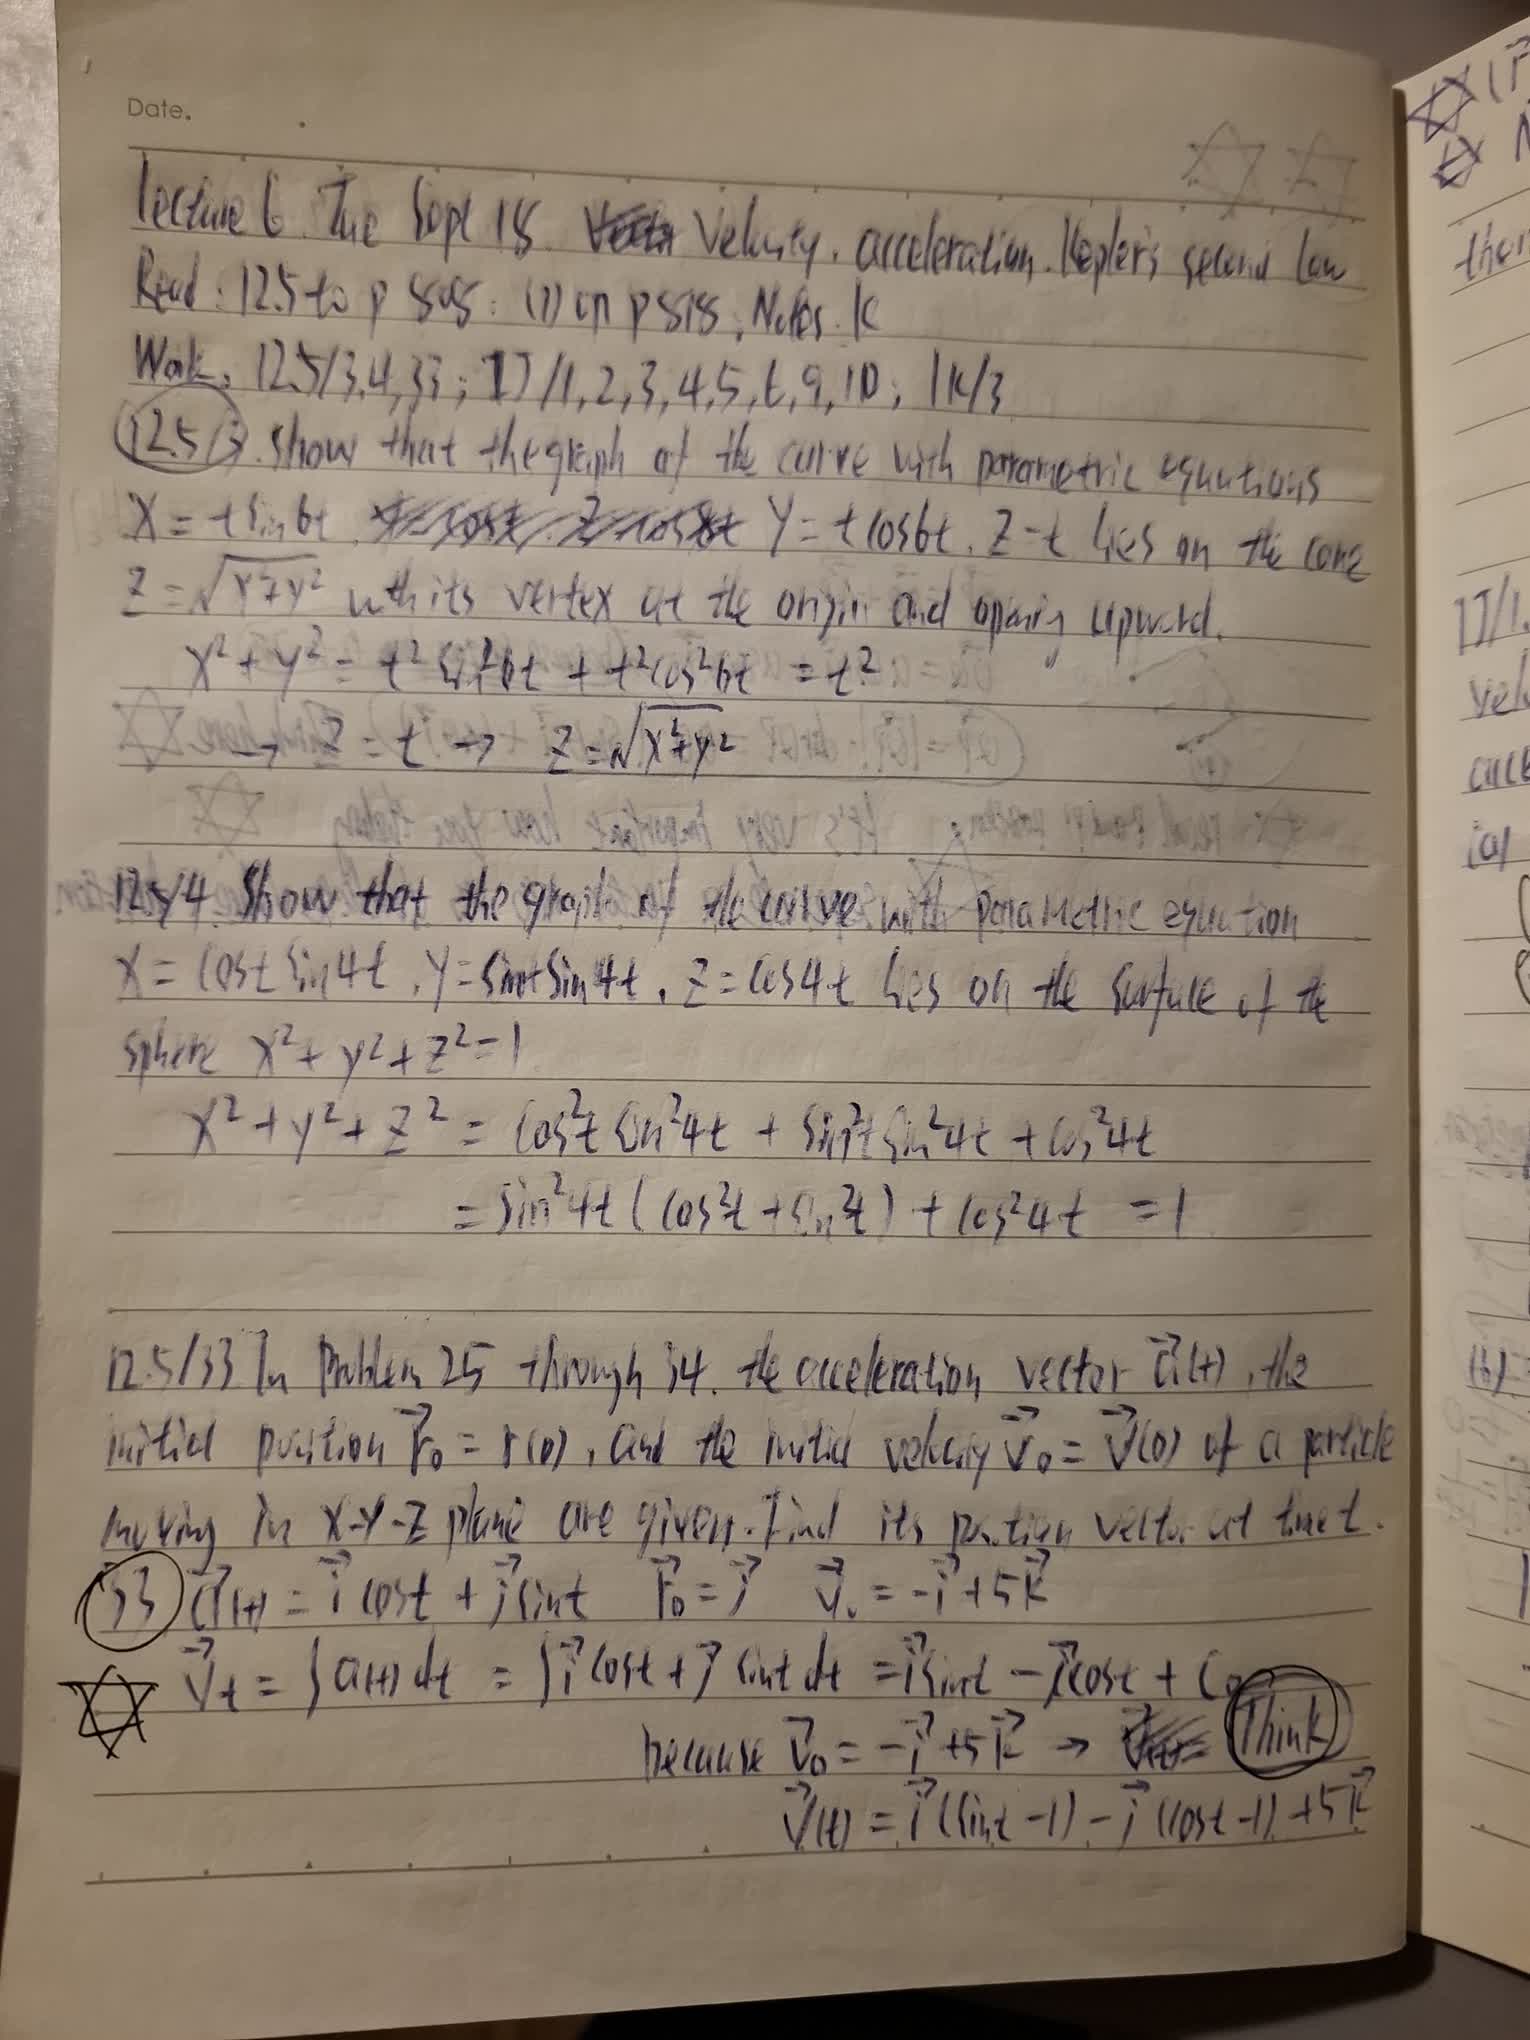 Date.
Lecture 6. Tue Sept 18 Velocity. acceleration. Kepler's second Law
Read: 12.5 to p 808. (7) on p 818, Notes. K
Work. 12.5/3,4,33; IJ/1,2,3,4,5,6,9,10; 1K/3
12.5/3. Show that the graph of the curve with parametric equations
X = t sin6t. Y = t cos6t. Z=t lies on the cone
Z = √x²+y² with its vertex at the origin and opening upward.
X² + y² = t² sin²6t + t²cos²6t = t²
→ Z = t → Z = √x²+y²
12.5/4. Show that the graph of the curve with parametric equation
X = cost sin4t, Y = sint sin4t. Z = cos4t lies on the surface of the
sphere x² + y² + z² = 1
X² + y² + z² = cos²t sin²4t + sin²t sin²4t + cos²4t
= sin²4t (cos²t + sin²t) + cos²4t = 1
12.5/33 In Problem 25 through 34. the acceleration vector a⃗(t), the
initial position r⃗₀ = r(0), and the initial velocity v⃗₀ = v⃗(0) of a particle
moving in x-y-z plane are given. Find its position vector at time t.
33 a⃗(t) = i⃗ cost + j⃗ sint r⃗₀ = j⃗ v⃗₀ = -i⃗ + 5k⃗
v⃗t = ∫a(t) dt = ∫i⃗ cost + j⃗ sint dt = i⃗ sint - j⃗ cost + C₀
because v⃗₀ = -i⃗ + 5k⃗ → Think
v⃗(t) = i⃗ (sint - 1) - j⃗ (cost - 1) + 5k⃗